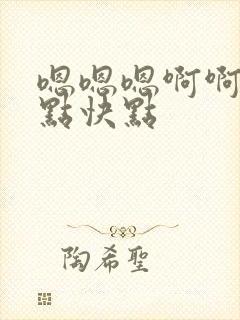 嗯嗯嗯啊啊
點快點
陶希聖